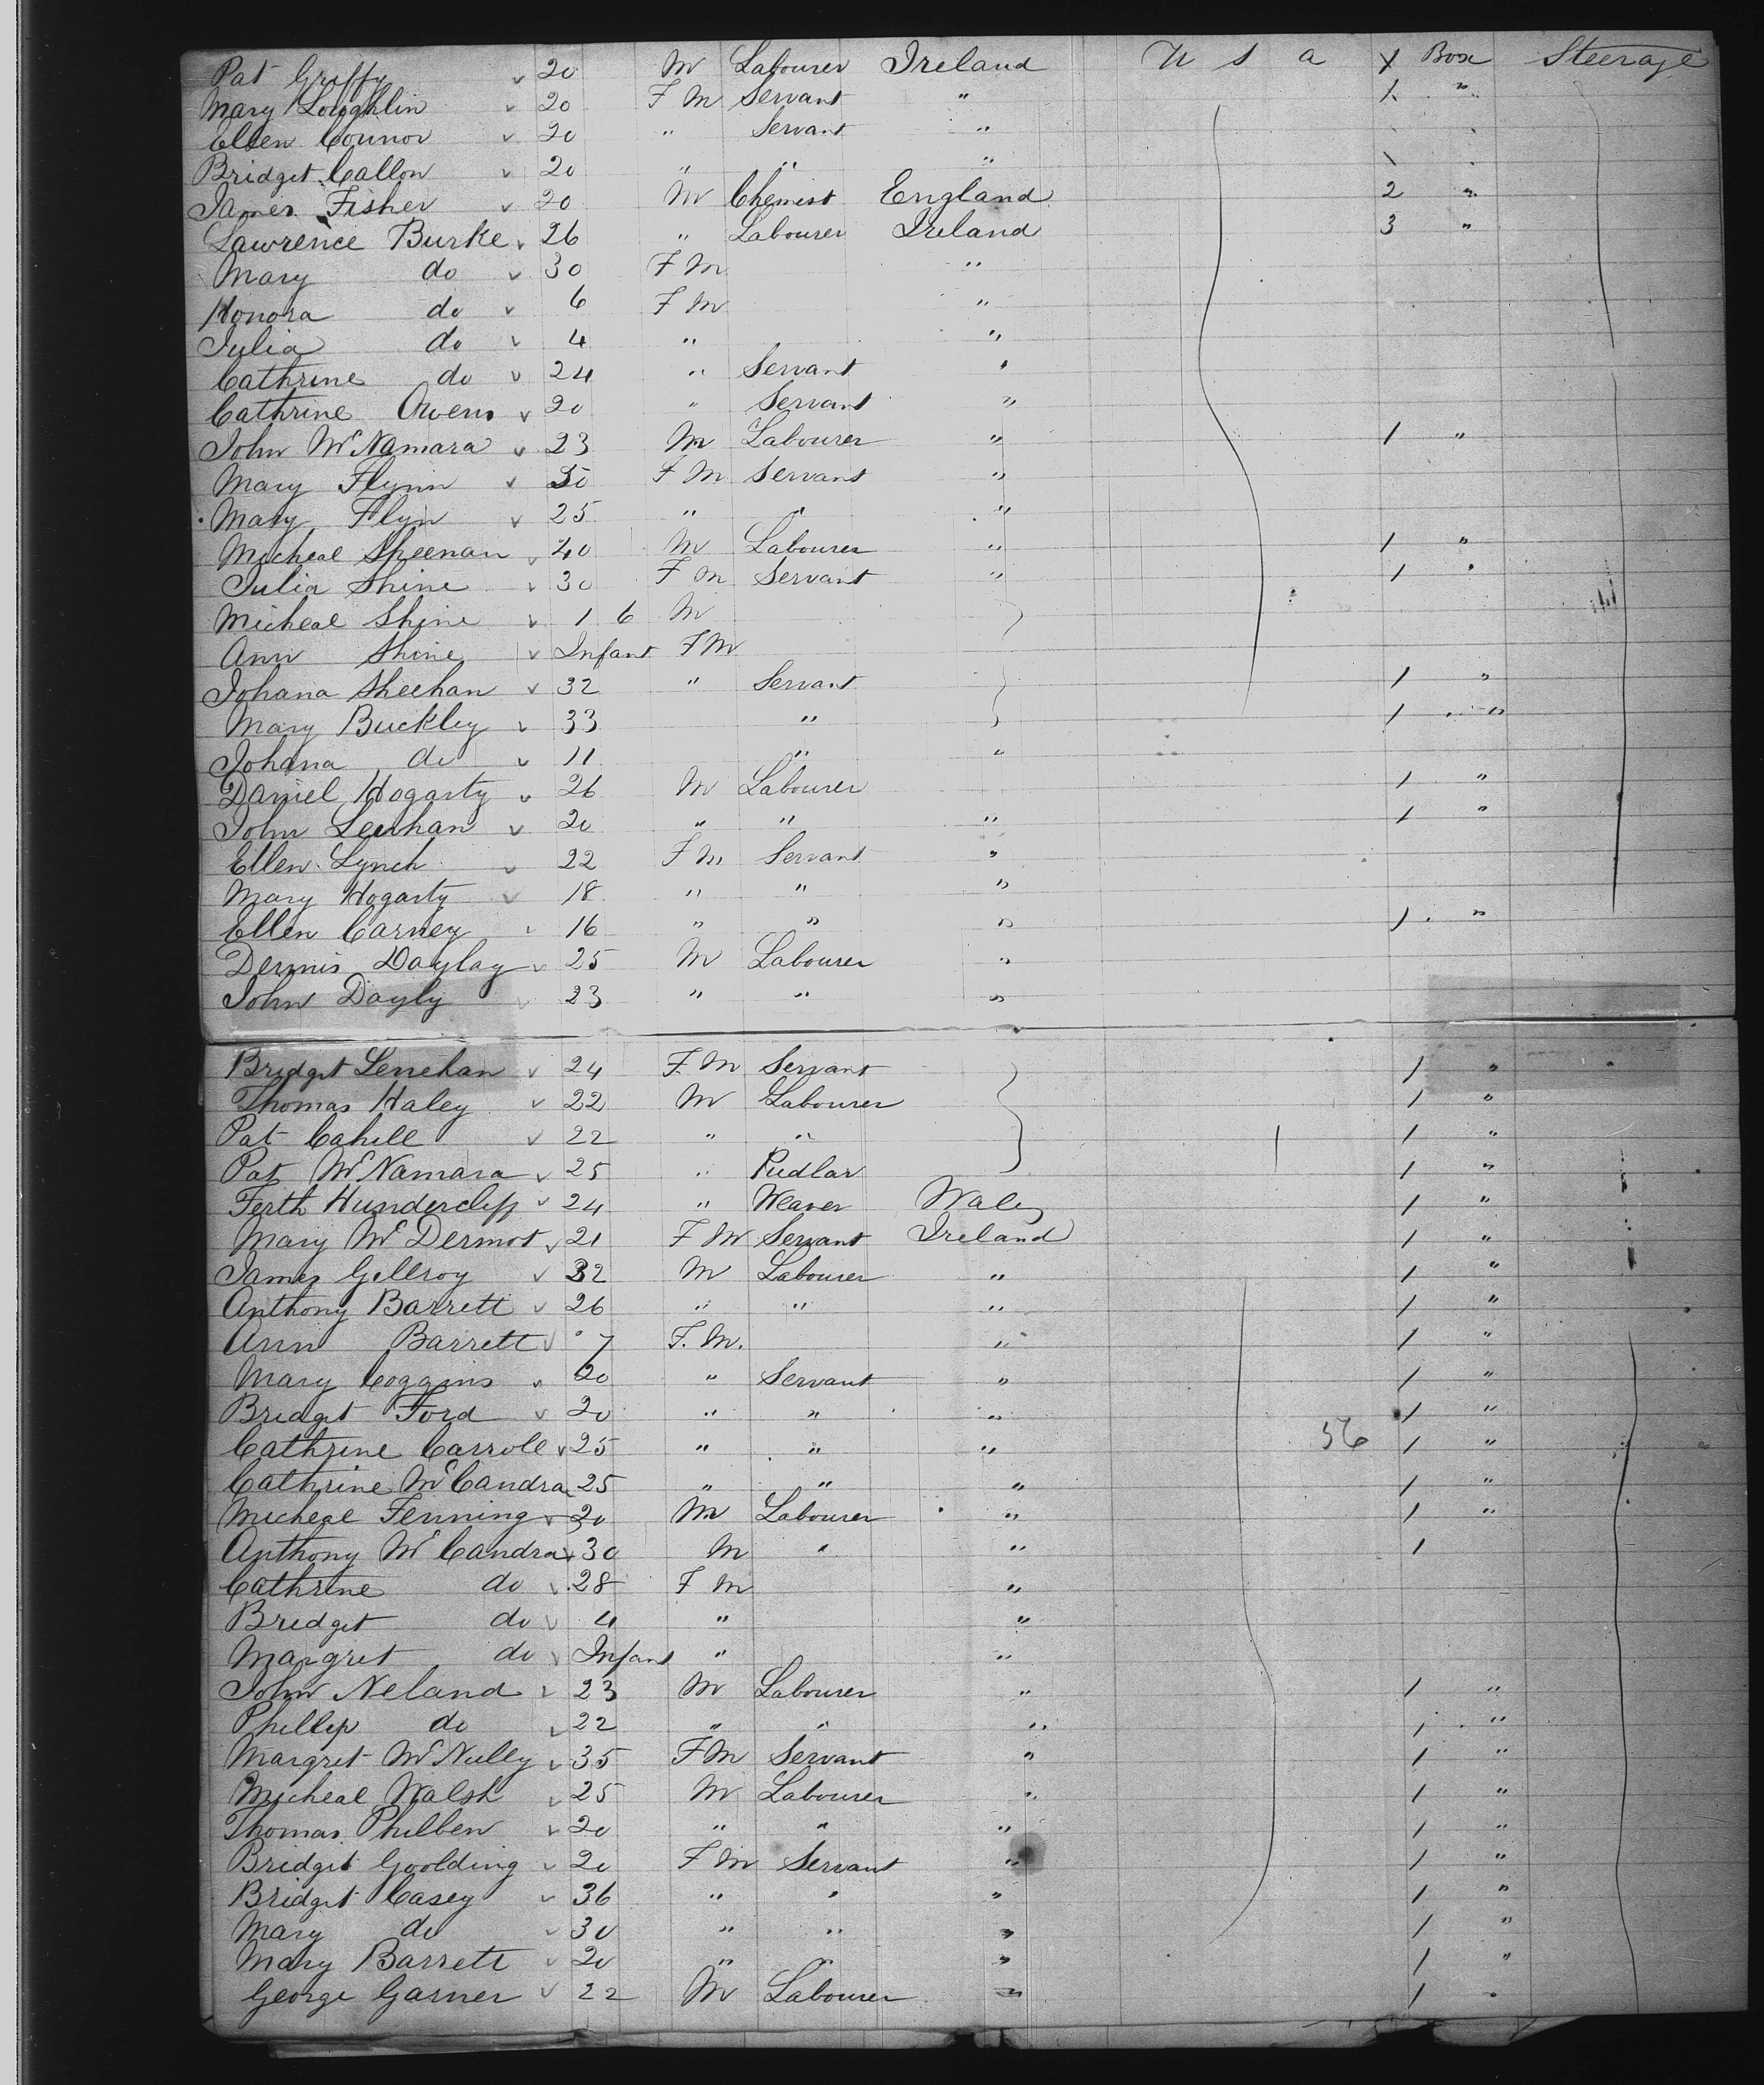 Pat Griffy 20 M Labourer Ireland U S A 1 Box Steerage
Mary Loughlin 20 F M Servant " 1 "
Ellen Connor 20 " Servant "
Bridget Callon 20 " " "
James Fisher 20 M Chemist England 2 "
Lawrence Burke 26 " Labourer Ireland 3 "
Mary do 30 F M "
Honora do 6 F M "
Julia do 4 " "
Cathrine do 24 " Servant "
Cathrine Owens 20 " Servant "
John McNamara 23 M Labourer " 1 "
Mary Flynn 30 F M Servant "
Mary Flyn 25 " " "
Micheal Sheenan 40 M Labourer " 1 "
Julia Shine 30 F M Servant " 1 "
Micheal Shine 1 6 M
Ann Shine Infant F M
Johana Sheehan 32 " Servant 1 "
Mary Buckley 33 " 1 "
Johana do 11 " "
Daniel Hogarty 26 M Labourer 1 "
John Leuhan 20 " " " 1 "
Ellen Lynch 22 F M Servant "
Mary Hogarty 18 " " "
Ellen Carney 16 " " " 1 "
Dennis Daylay 25 M Labourer "
John Dayly 23 " " "
Bridget Lenehan 24 F. M Servant 1 "
Thomas Haley 22 M Labourer 1 "
Pat Cahill 22 " " 1 "
Pat McNamara 25 " Pudlar 1 "
Ferth Hundercliff 24 " Weaver Wales 1 "
Mary McDermot 21 F M Servant Ireland 1 "
James Gillroy 32 M Labourer " 1 "
Anthony Barrett 26 " " " 1 "
Ann Barrett 7 F. M. " 1 "
Mary Coggins 20 " Servant " 1 "
Bridget Ford 20 " " " 1 "
Cathrine Carroll 25 " " " 56 1 "
Cathrine McCandra 25 " " " 1 "
Micheal Fenning 20 M Labourer " 1 "
Anthony McCandra 30 M " " 1
Cathrine do 28 F M "
Bridget do 4 " "
Margret do Infant " "
John Neland 23 M Labourer " 1 "
Phillip do 22 " " " 1 "
Margret McNully 35 F M Servant " 1 "
Micheal Walsh 25 M Labourer " 1 "
Thomas Philben 20 " " " 1 "
Bridget Goolding 20 F M Servant " 1 "
Bridget Casey 36 " " " 1 "
Mary do 30 " " " 1 "
Mary Barrett 20 " " " 1 "
George Garner 22 M Labourer " 1 "